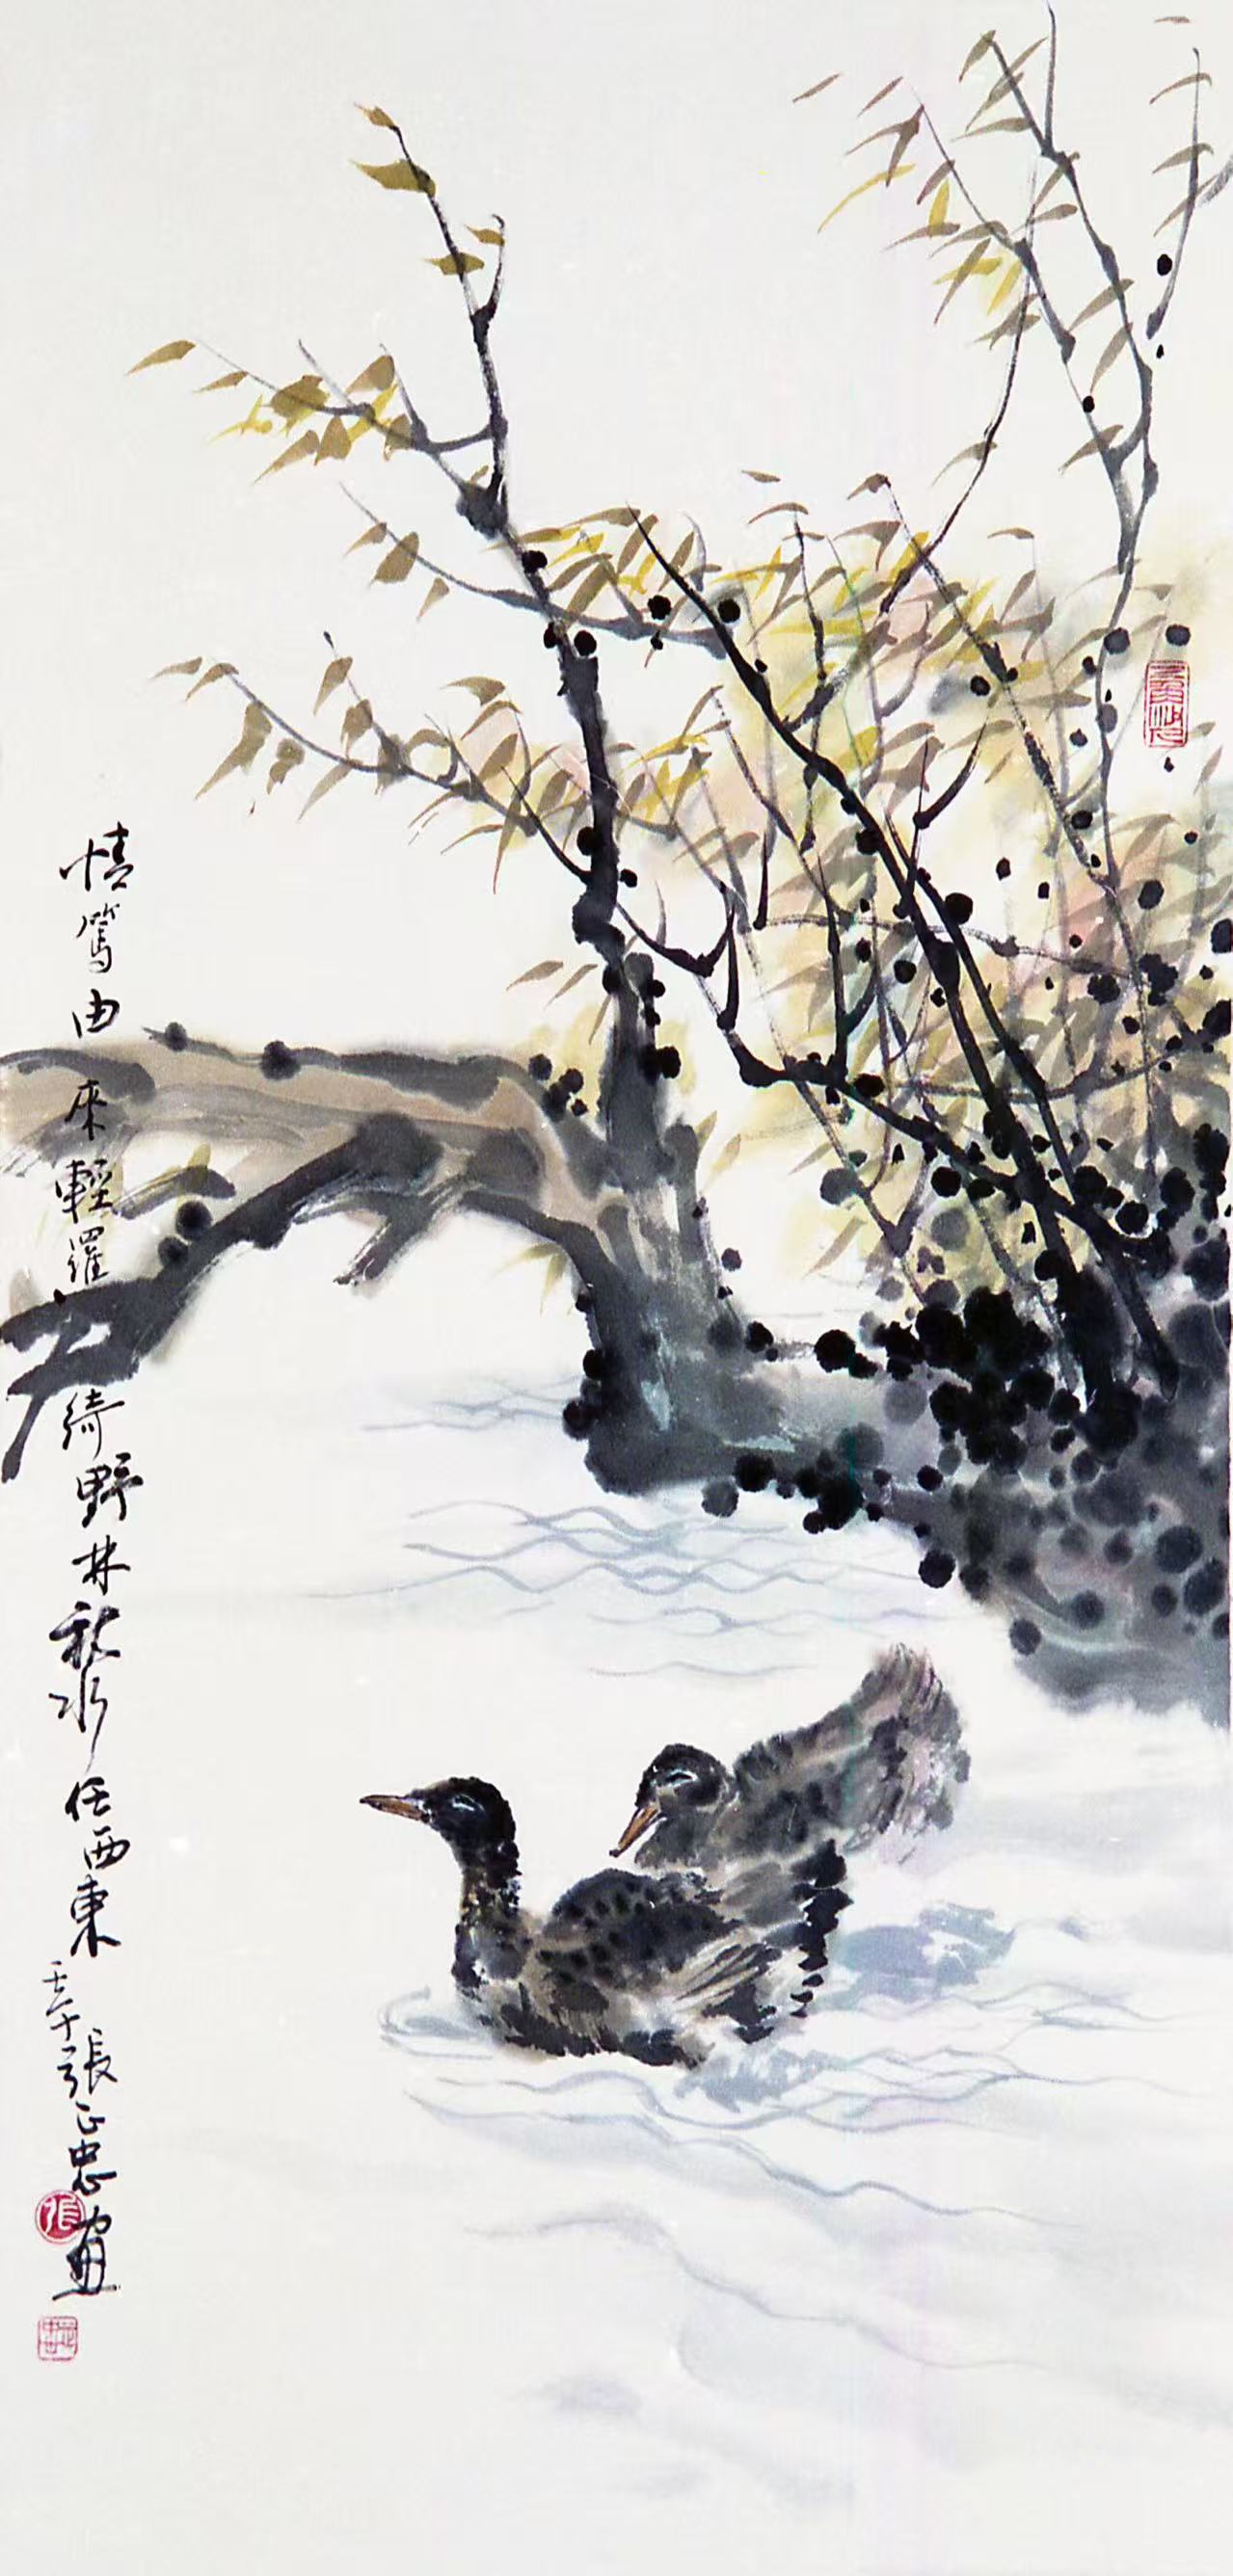 情篤由來輕羅綺野林秋水任西東
壬午張正忠畫
張